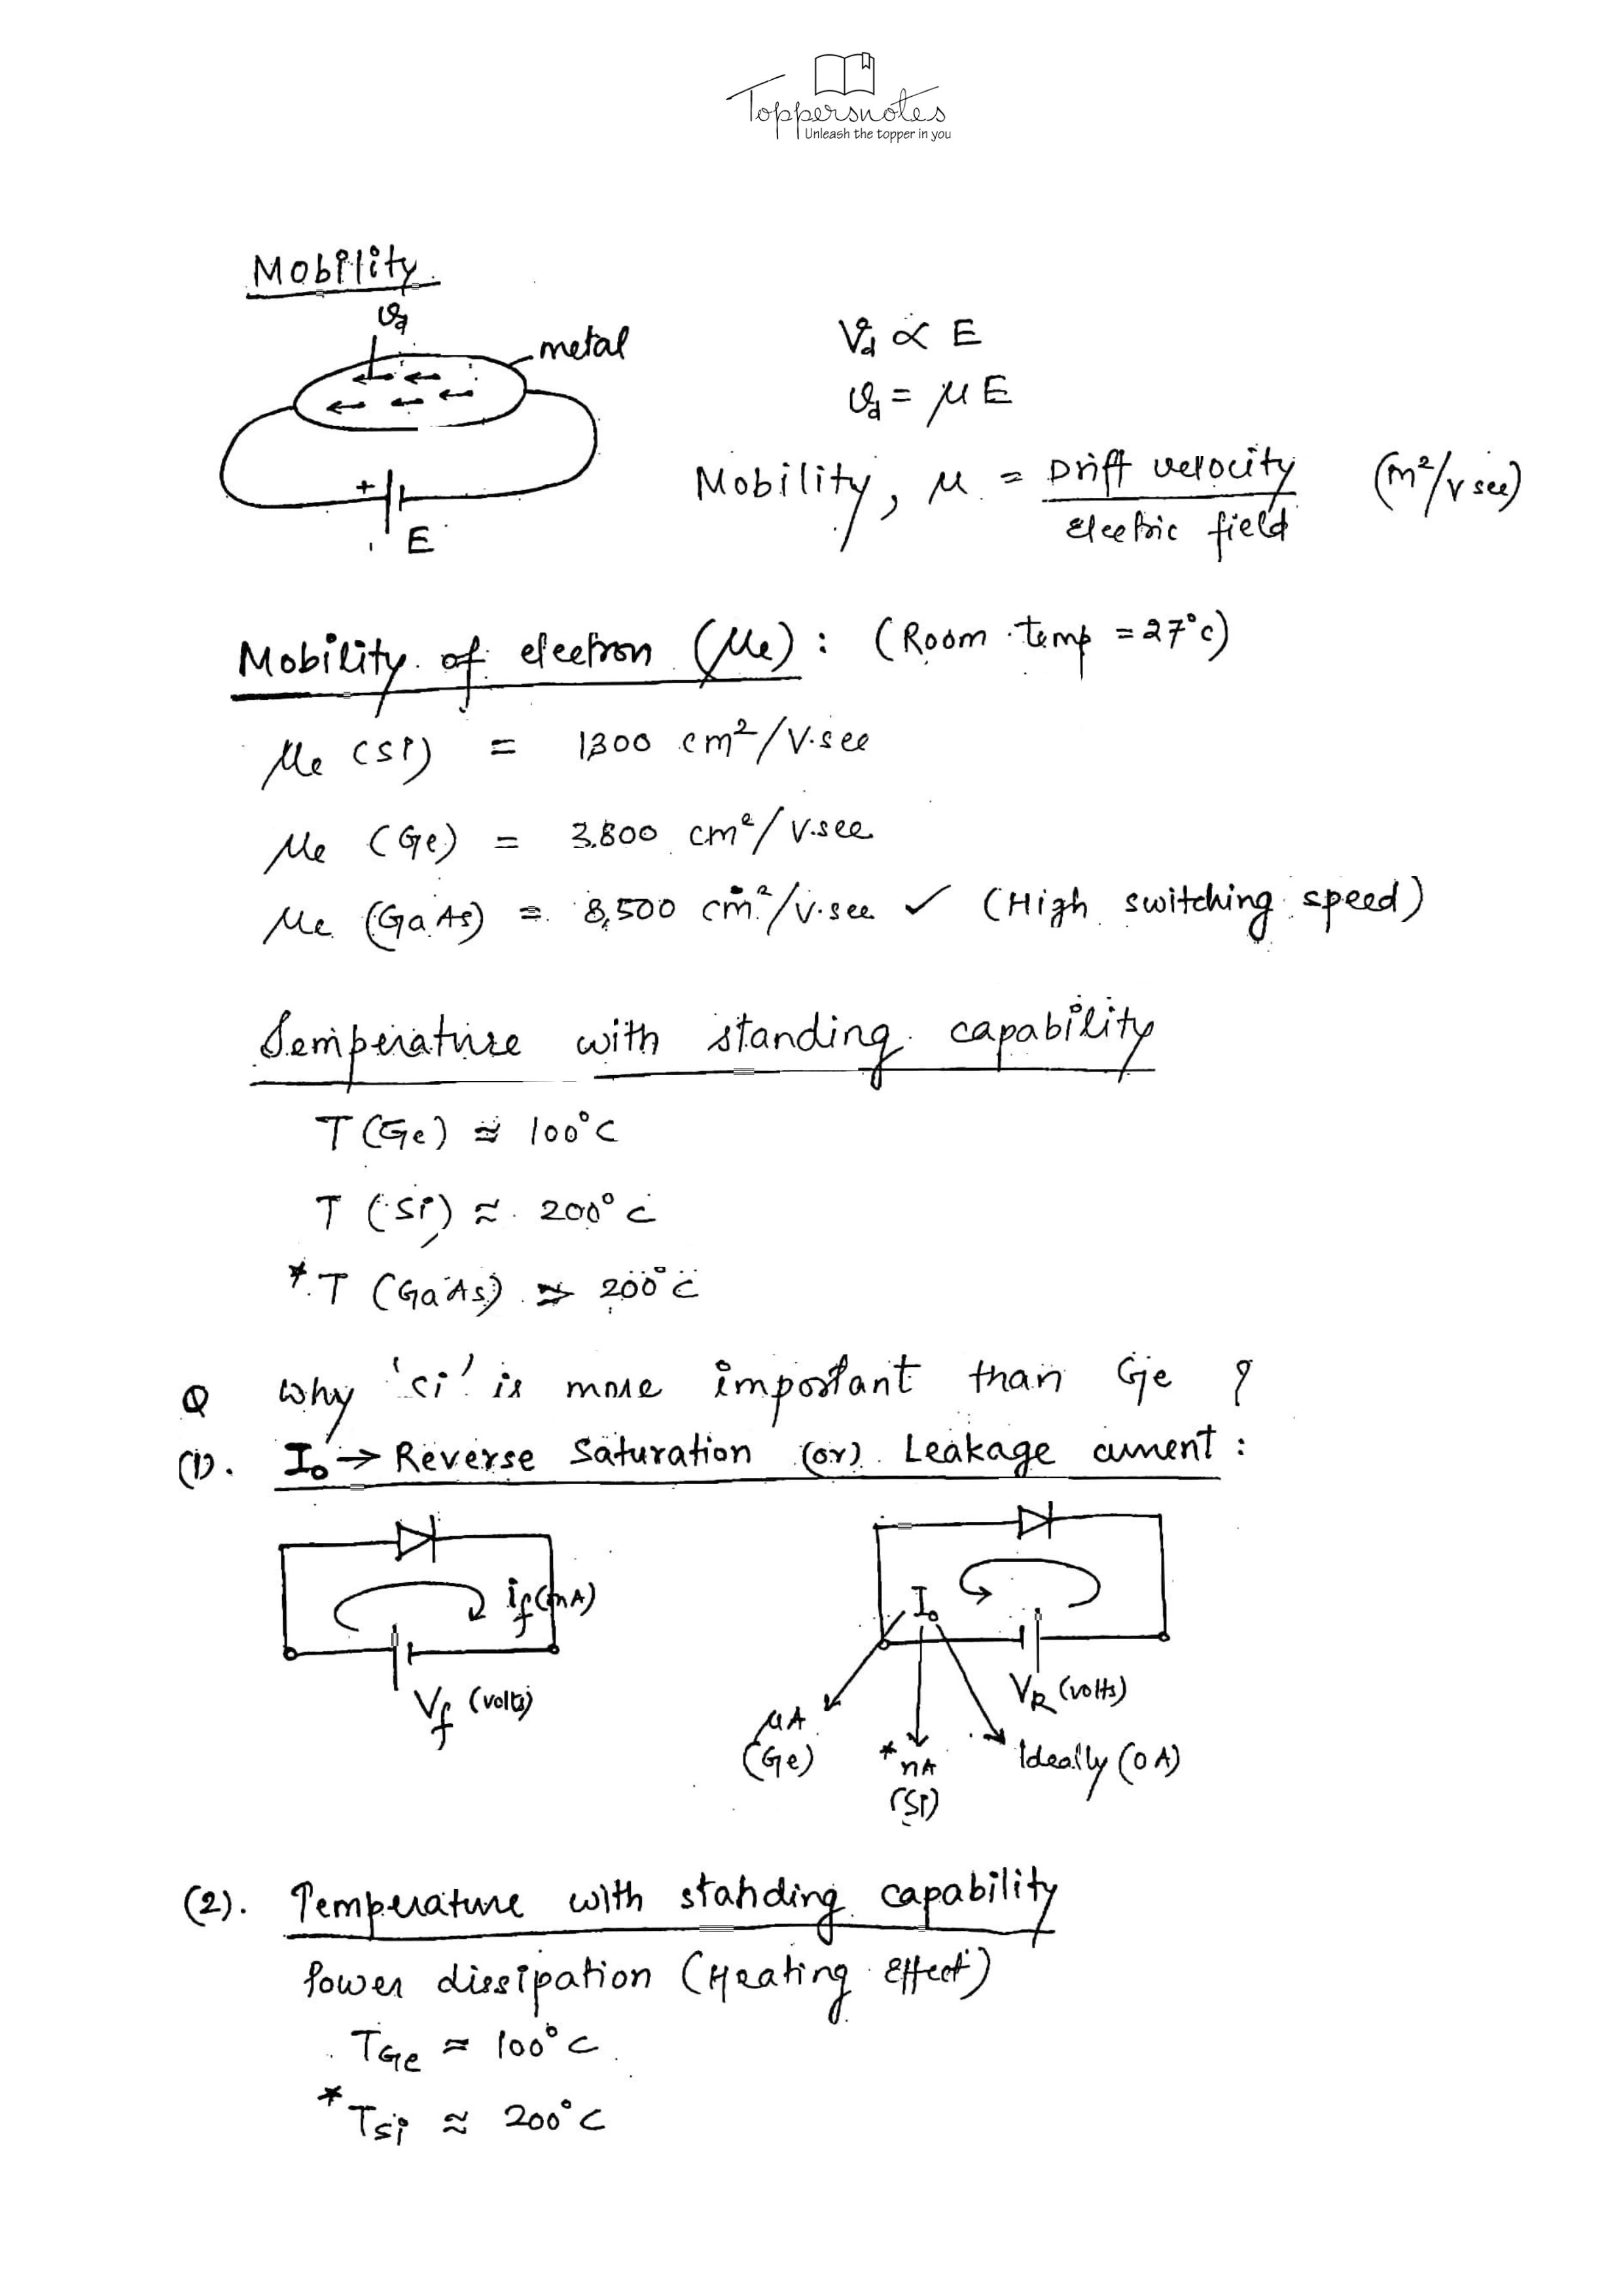 Toppersnotes
Unleash the topper in you
Mobility
vd
metal
+
E
Vd ∝ E
vd = μ E
Mobility, μ = Drift velocity / Electric field (m²/v sec)
Mobility of electron (μe) : (Room temp = 27°c)
μe (Si) = 1300 cm²/V.sec
μe (Ge) = 3,800 cm²/V.sec
μe (GaAs) = 8,500 cm²/V.sec ✓ (High switching speed)
Temperature with standing capability
T (Ge) ≈ 100°C
T (Si) ≈ 200°C
* T (GaAs) ≈ 200°C
Q why 'si' is more important than Ge ?
(1). I₀ → Reverse Saturation (or) Leakage current :
if (mA)
Vf (volts)
I₀
VR (volts)
μA (Ge)
* nA (Si)
Ideally (0 A)
(2). Temperature with standing capability
Power dissipation (Heating Effect)
TGe ≈ 100°C
* TSi ≈ 200°C